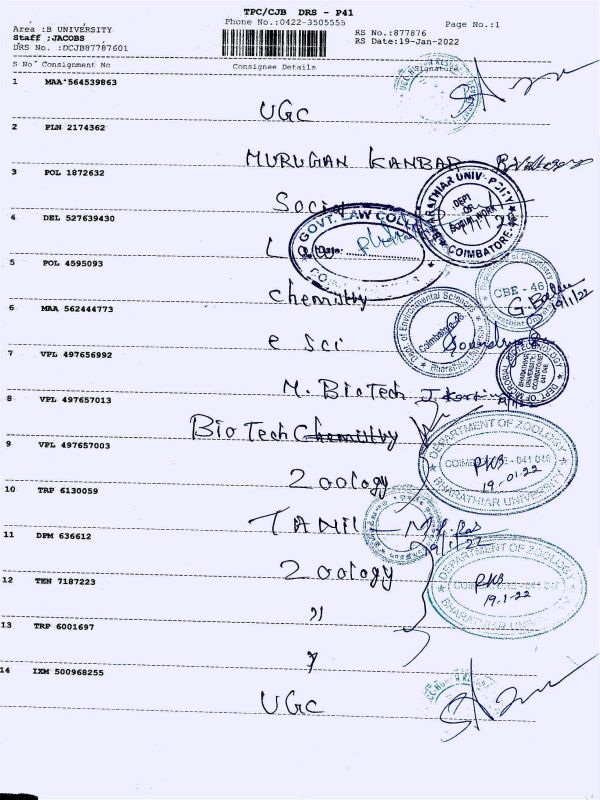 TPC/CJB DRS - P41
Phone No.:0422-3505555
Page No.:1
Area :B UNIVERSITY
Staff :JACOBS
DRS No. :DCJB87787601
RS No.:877876
RS Date:19-Jan-2022
S No Consignment No Consignee Details Signature
1 MAA 564539863 UGC
2 PLN 2174362 MURUGAN KANBAR
3 POL 1872632 Social
BHARATHIAR UNIVERSITY
DEPT OF SOCIAL WORK
COIMBATORE
4 DEL 527639430
GOVT. LAW COLL
Date:
5 POL 4595093 chemistry
CBE - 46
G. Balan
19/1/22
6 MAA 562444773 e sci
Dept of Environmental Sciences
Coimbatore-46
Bharathiar
7 VPL 497656992 M. BioTech
DEPT OF MICROBIAL BIOTECHNOLOGY
BHARATHIAR UNIVERSITY
COIMBATORE
8 VPL 497657013 BioTech Chemistry
9 VPL 497657003 Zoology
DEPARTMENT OF ZOOLOGY
COIMBATORE - 641 046
BHARATHIAR UNIVERSITY
19-01-22
10 TRP 6130059 TAMIL
19/1/22
11 DPM 636612 Zoology
DEPARTMENT OF ZOOLOGY
BHARATHIAR
19-1-22
12 TEN 7187223 "
13 TRP 6001697 "
14 IXM 500968255 UGC